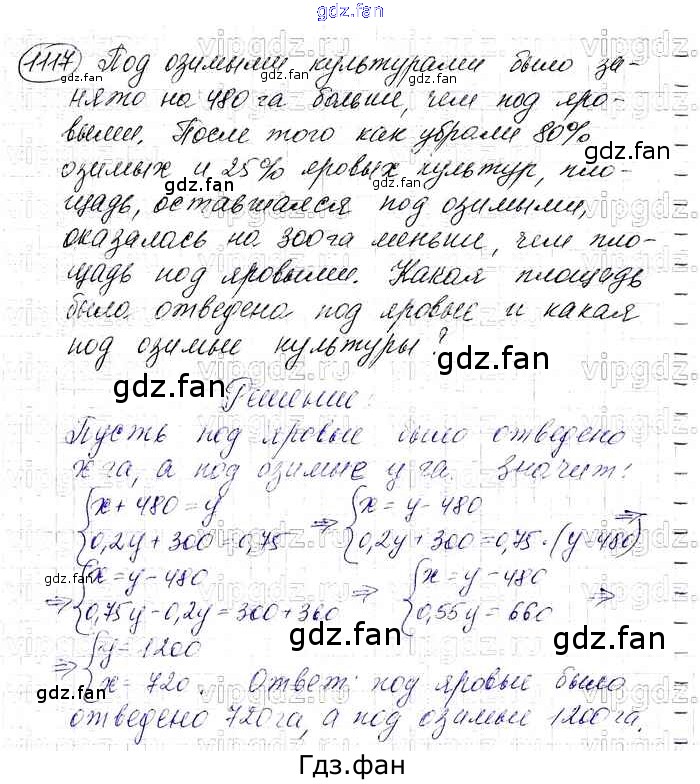 gdz.fan
1117) Под озимыми культурами было за-
нято на 480 га больше, чем под яро-
выми. После того как убрали 80%
озимых и 25% яровых культур, пло-
щадь, оставшаяся под озимыми,
оказалась на 300 га меньше, чем пло-
щадь под яровыми. Какая площадь
была отведена под яровые и какая
под озимые культуры?
gdz.fan
Решение:
Пусть под яровые было отведено
x га, а под озимые y га. Значит:
{x + 480 = y {x = y - 480
{0,2y + 300 = 0,75 ⇒ {0,2y + 300 = 0,75 · (y - 480) ⇒
{x = y - 480 {x = y - 480
⇒ {0,75y - 0,2y = 300 + 360 ⇒ {0,55y = 660 ⇒
⇒ {y = 1200
{x = 720. Ответ: под яровые было
отведено 720 га, а под озимые 1200 га.
Гдз.фан